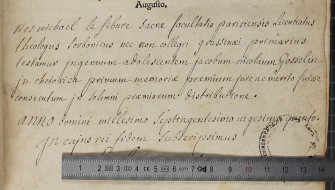 Augusto,
Nos michael le febure sacrae facultatis parisiensis Licentiatus
theologus sorbonicus nec non collegii grassinaei primarius
testamur ingenuum adolescentem jacobum nicolaum Gosselin
in rhetorica primum memoriae praemium jure ac merito fuisse
consecutum in solemni praemiorum distributione.
anno domini millesimo septingentesimo vigesimo quinto.
In cujus rei fidem subscripsimus
0 1 2 3 4 5 6 7 8 9 10 11 12 13 14